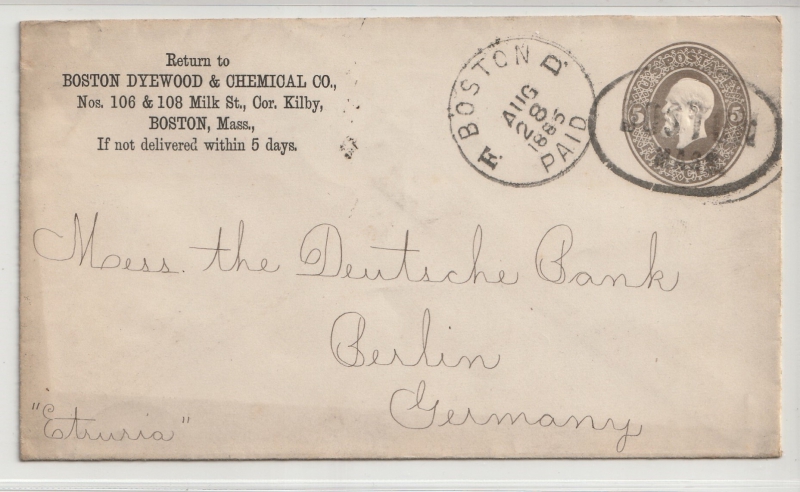 Return to
BOSTON DYEWOOD & CHEMICAL CO.,
Nos. 106 & 108 Milk St., Cor. Kilby,
BOSTON, Mass.,
If not delivered within 5 days.
BOSTON D.
AUG
28
1885
PAID
5 5
BOSTON
MASS
Mess. the Deutsche Bank
Berlin
Germany
"Etruria"